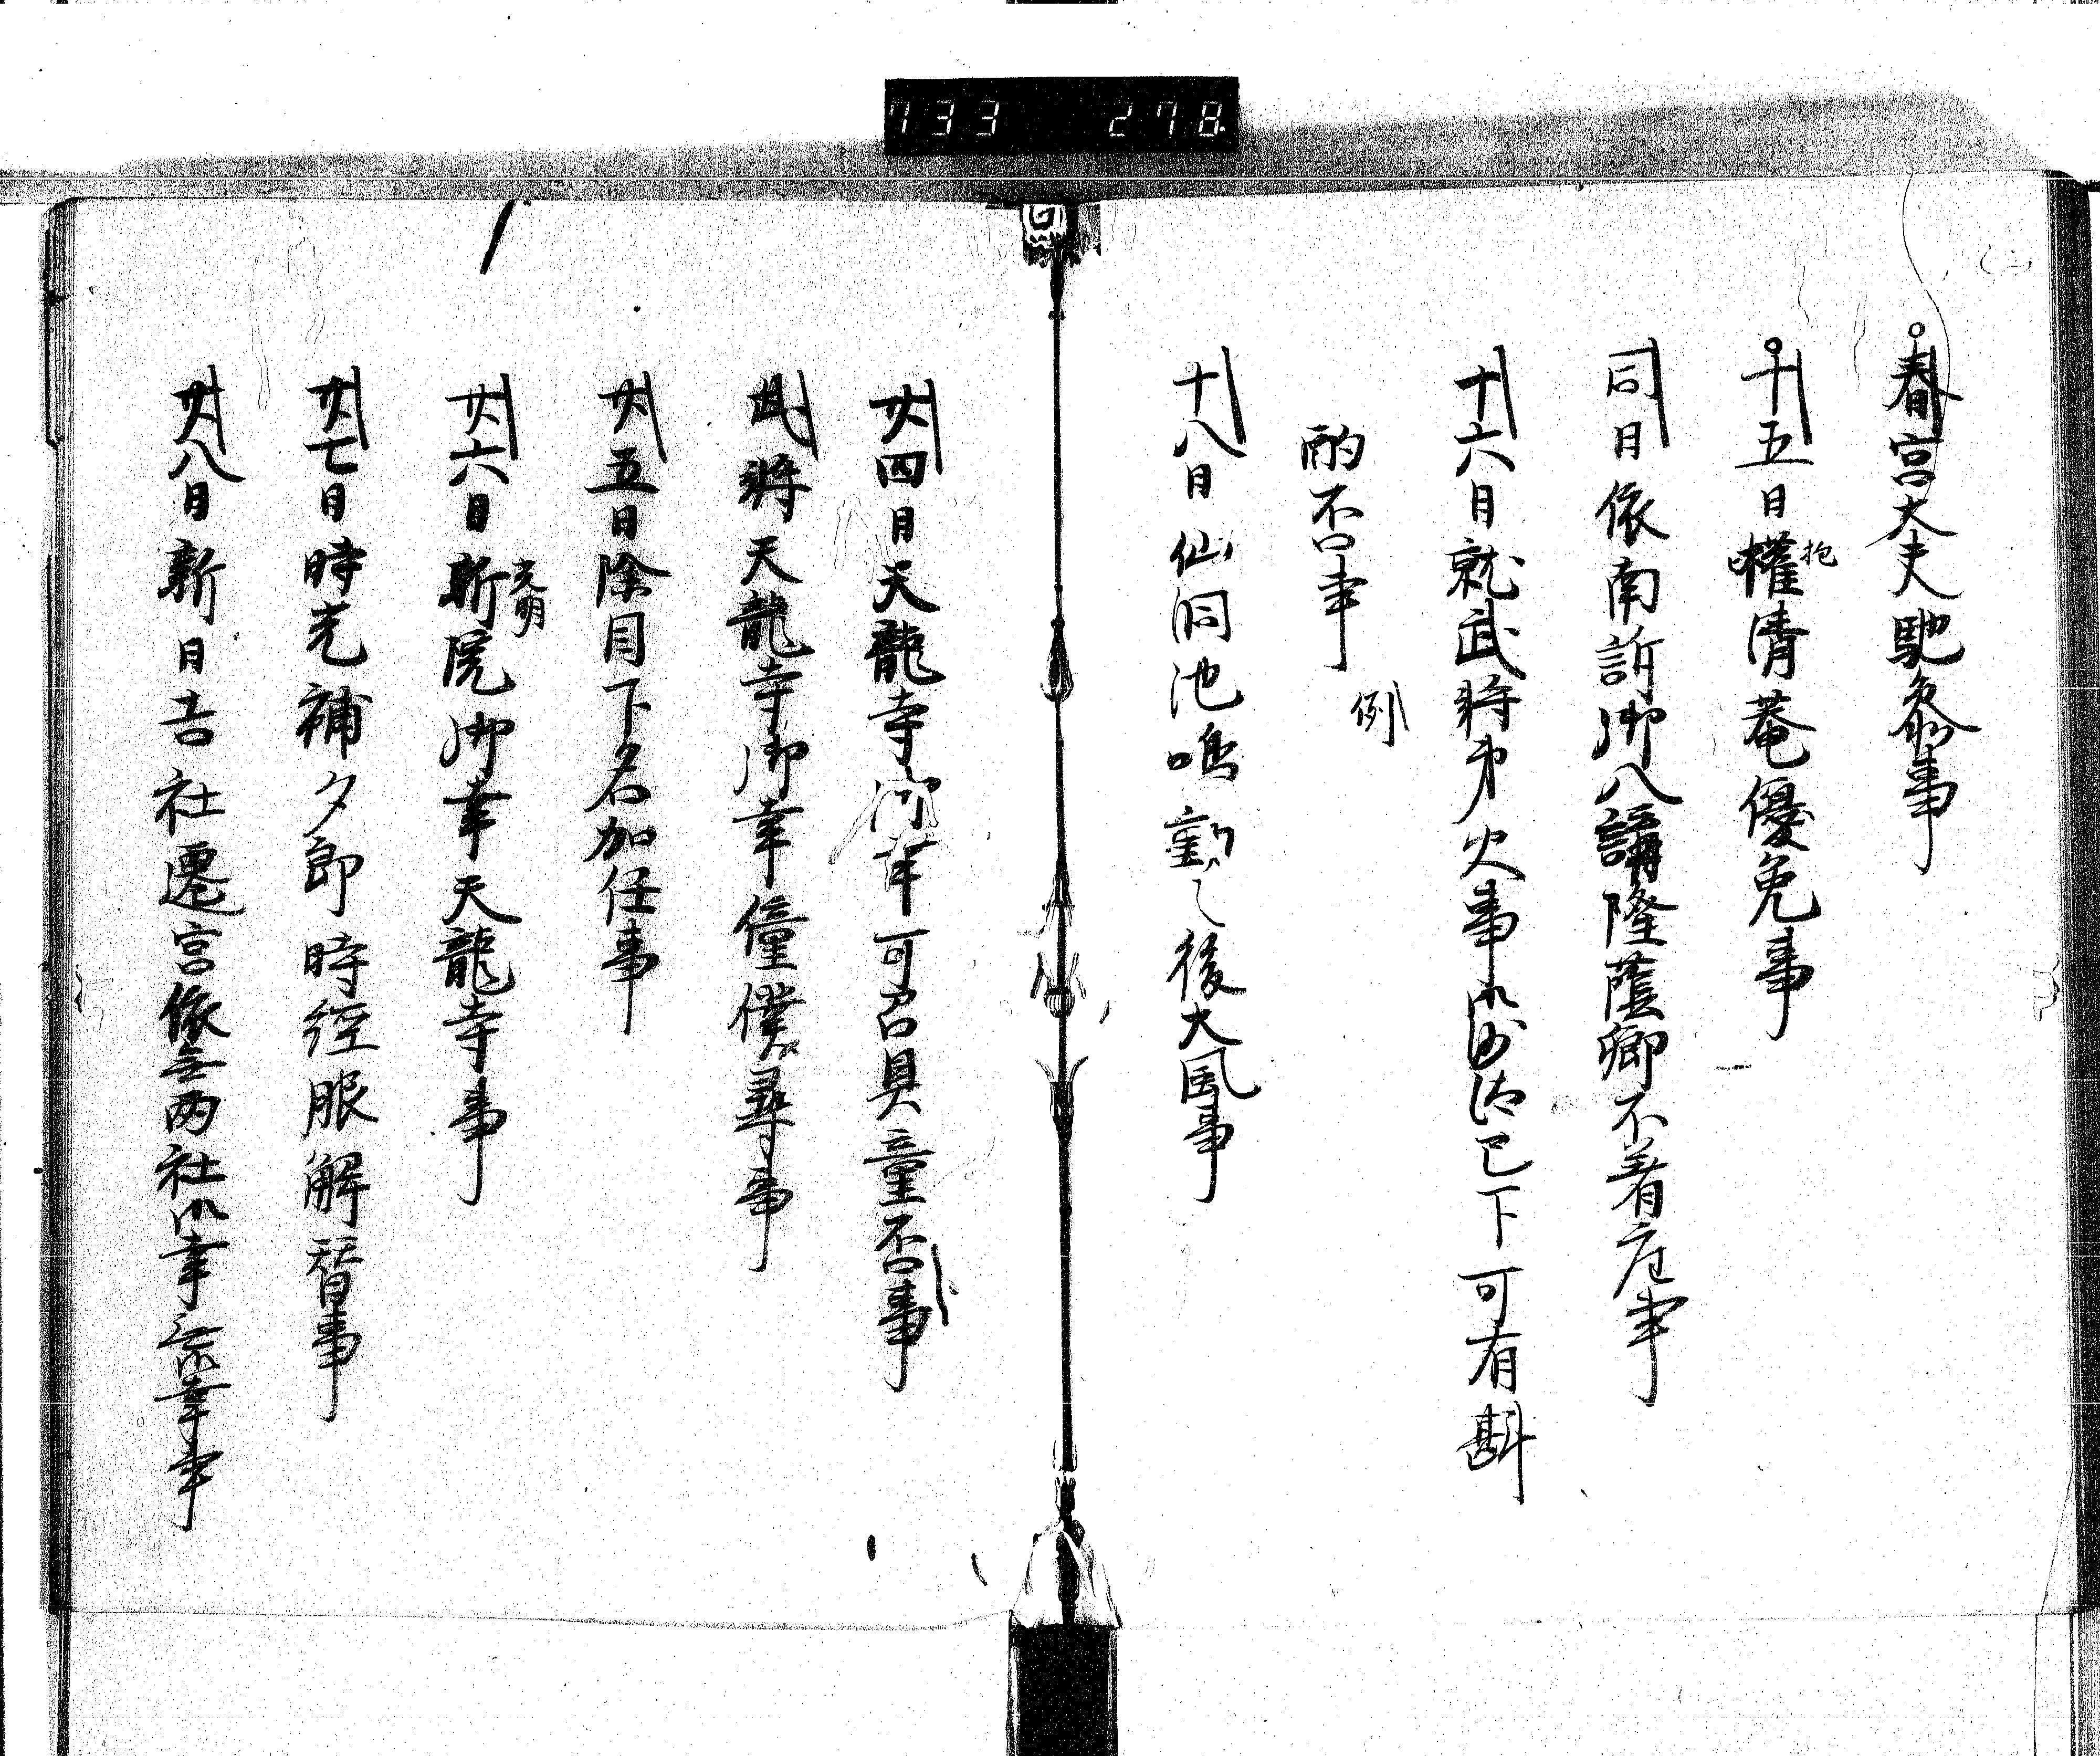 春宮大夫馳参事
十五日権清菴優免事
抱
同日依南訴御八講隆蔭卿不着座事
十六日就武将第火事御沙汰已下可有斟
酌否事
例
十八日仙洞池鳴動之後大風事
廿四日天龍寺御幸可召具童否事
武将天龍寺御幸僮僕尋事
廿五日除目下名加任事
廿六日新院御幸天龍寺事
光明
廿七日時光補夕郎時経服解替事
廿八日新日吉社遷宮依無両社御幸無幸事
733 278